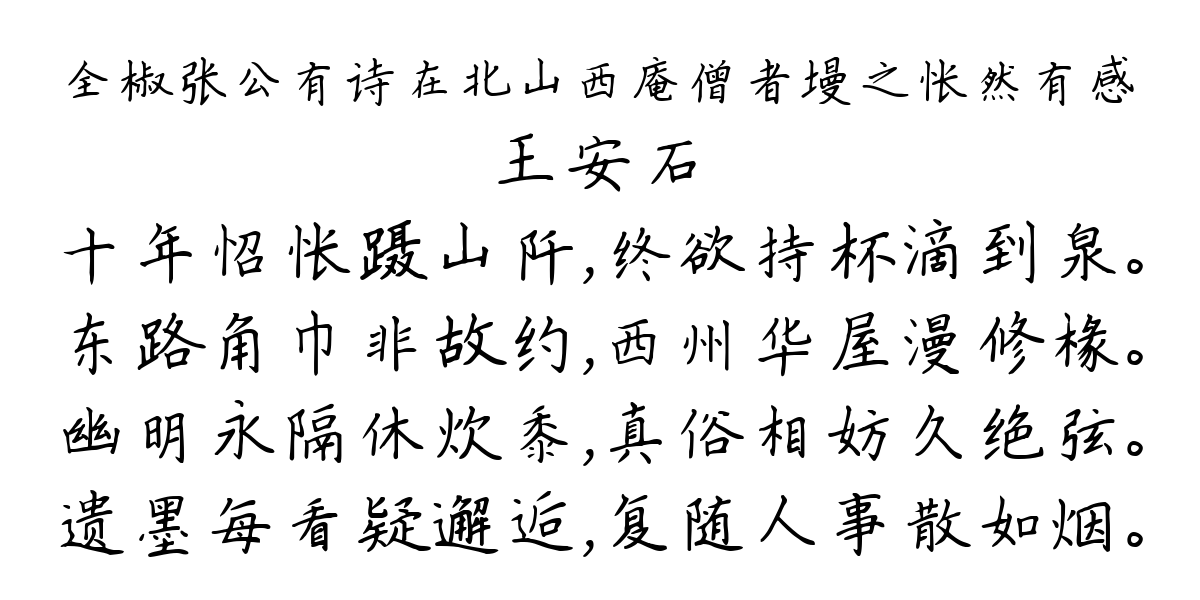 全椒张公有诗在北山西庵僧者墁之怅然有感
王安石
十年怊怅蹑山阡,终欲持杯滴到泉。
东路角巾非故约,西州华屋漫修椽。
幽明永隔休炊黍,真俗相妨久绝弦。
遗墨每看疑邂逅,复随人事散如烟。